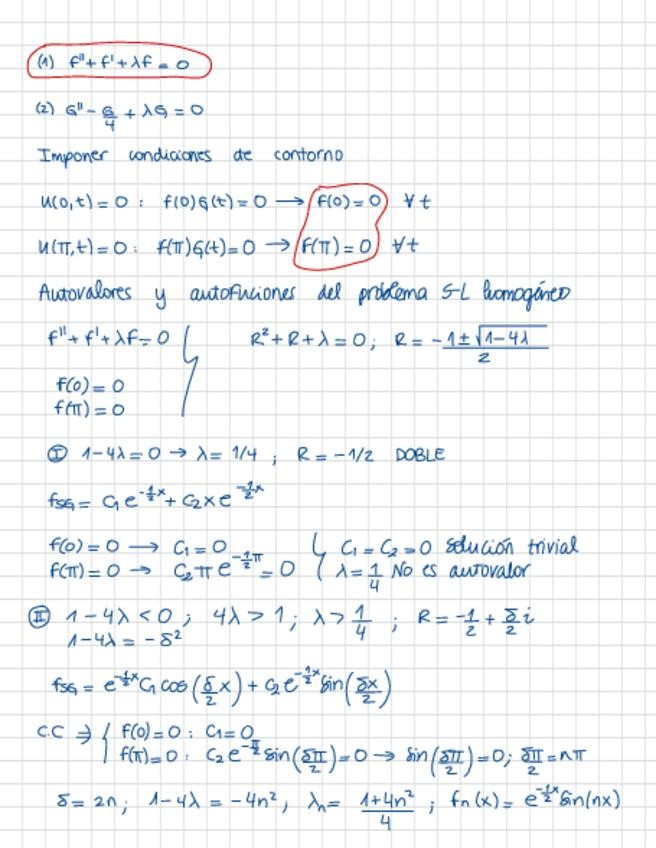 (1) f'' + f' + λf = 0
(2) G'' - G/4 + λG = 0
Imponer condiciones de contorno
u(0,t) = 0 : f(0)G(t) = 0 → f(0) = 0 ∀t
u(π,t) = 0 : f(π)G(t) = 0 → f(π) = 0 ∀t
Autovalores y autofuciones del problema S-L homogéneo
f'' + f' + λf = 0 R² + R + λ = 0 ; R = -1 ± √(1-4λ) / 2
f(0) = 0
f(π) = 0
Ⓘ 1-4λ = 0 → λ = 1/4 ; R = -1/2 DOBLE
f_SG = C₁e^(-1/2 x) + C₂xe^(-1/2 x)
f(0) = 0 → C₁ = 0 C₁ = C₂ = 0 solución trivial
f(π) = 0 → C₂πe^(-1/2 π) = 0 λ = 1/4 No es autovalor
Ⅱ 1-4λ < 0 ; 4λ > 1 ; λ > 1/4 ; R = -1/2 + δ/2 i
1-4λ = -δ²
f_SG = e^(-1/2 x) C₁ cos(δ/2 x) + C₂e^(-1/2 x) sin(δx/2)
C.C ⇒ { f(0) = 0 : C₁ = 0
f(π) = 0 : C₂e^(-π/2) sin(δπ/2) = 0 → sin(δπ/2) = 0 ; δπ/2 = nπ
δ = 2n ; 1-4λ = -4n² , λₙ = 1+4n² / 4 ; fₙ(x) = e^(-1/2 x) sin(nx)